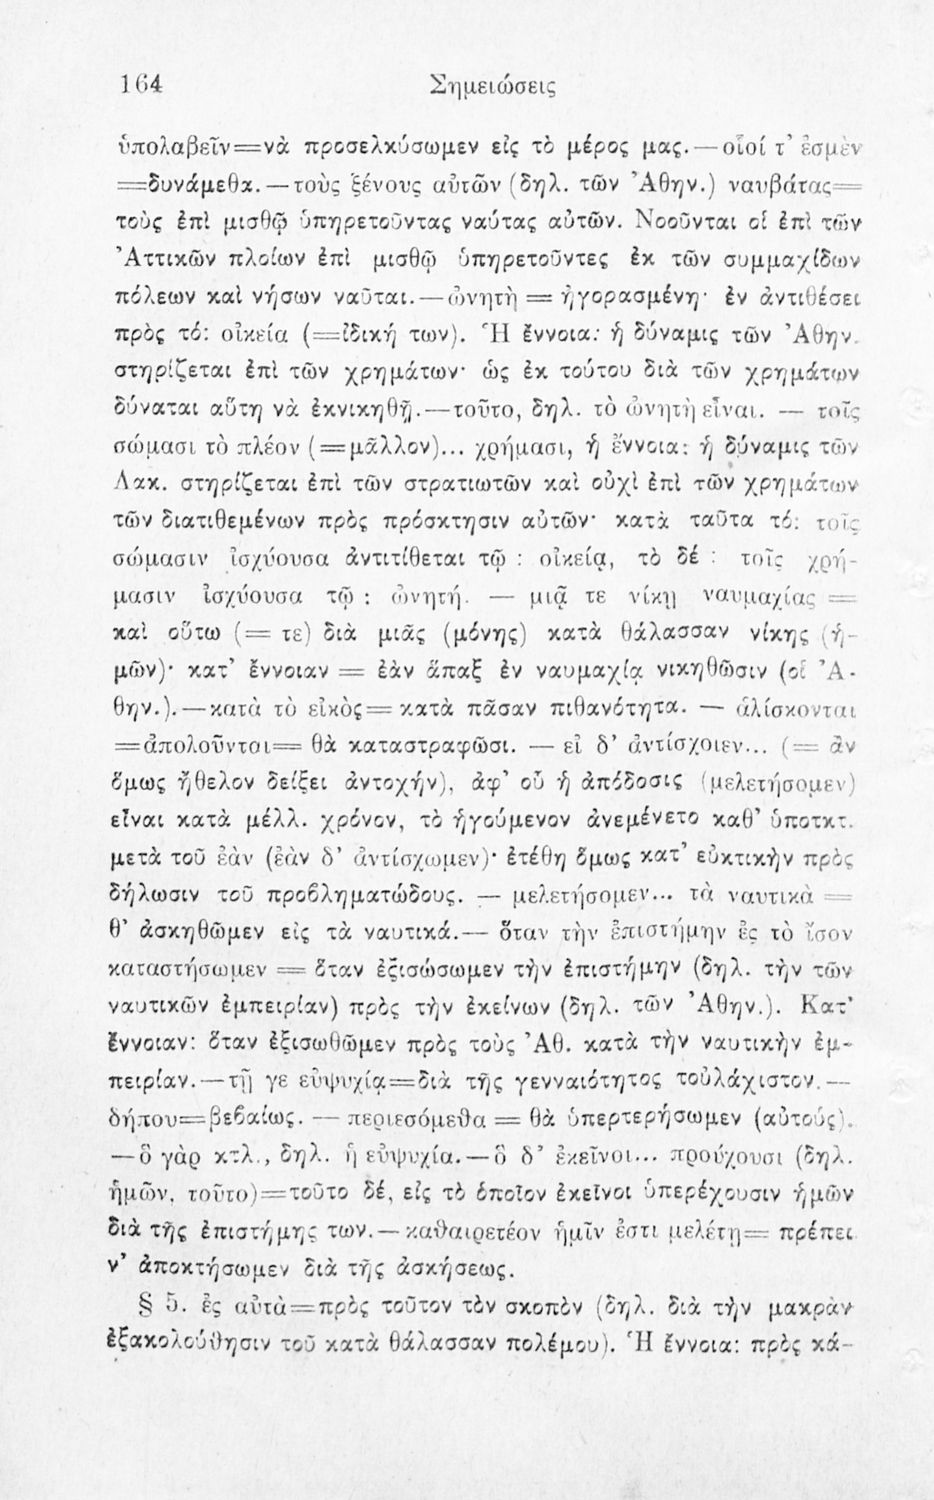 164 Σημειώσεις
ὑπολαβεῖν=νὰ προσελκύσωμεν εἰς τὸ μέρος μας.—οἷοί τ’ ἐσμὲν
=δυνάμεθα.—τοὺς ξένους αὐτῶν (δηλ. τῶν Ἀθην.) ναυβάτας=
τοὺς ἐπὶ μισθῷ ὑπηρετοῦντας ναύτας αὐτῶν. Νοοῦνται οἱ ἐπὶ τῶν
Ἀττικῶν πλοίων ἐπὶ μισθῷ ὑπηρετοῦντες ἐκ τῶν συμμαχίδων
πόλεων καὶ νήσων ναῦται.—ὠνητὴ = ἠγορασμένη· ἐν ἀντιθέσει
πρὸς τό: οἰκεία (=ἰδική των). Ἡ ἔννοια: ἡ δύναμις τῶν Ἀθην.
στηρίζεται ἐπὶ τῶν χρημάτων· ὡς ἐκ τούτου διὰ τῶν χρημάτων
δύναται αὕτη νὰ ἐκνικηθῇ.—τοῦτο, δηλ. τὸ ὠνητὴ εἶναι. — τοῖς
σώμασι τὸ πλέον (=μᾶλλον)... χρήμασι, ἡ ἔννοια: ἡ δύναμις τῶν
Λακ. στηρίζεται ἐπὶ τῶν στρατιωτῶν καὶ οὐχὶ ἐπὶ τῶν χρημάτων
τῶν διατιθεμένων πρὸς πρόσκτησιν αὐτῶν· κατὰ ταῦτα τό: τοῖς
σώμασιν ἰσχύουσα ἀντιτίθεται τῷ : οἰκείᾳ, τὸ δέ : τοῖς χρή-
μασιν ἰσχύουσα τῷ : ὠνητή. — μιᾷ τε νίκῃ ναυμαχίας =
καὶ οὕτω (= τε) διὰ μιᾶς (μόνης) κατὰ θάλασσαν νίκης (ἡ-
μῶν)· κατ’ ἔννοιαν = ἐὰν ἅπαξ ἐν ναυμαχίᾳ νικηθῶσιν (οἱ Ἀ-
θην.).—κατὰ τὸ εἰκὸς= κατὰ πᾶσαν πιθανότητα. — ἁλίσκονται
=ἀπολοῦνται= θὰ καταστραφῶσι. — εἰ δ’ ἀντίσχοιεν... (= ἂν
ὅμως ἤθελον δείξει ἀντοχήν), ἀφ’ οὗ ἡ ἀπόδοσις (μελετήσομεν)
εἶναι κατὰ μέλλ. χρόνον, τὸ ἡγούμενον ἀνεμένετο καθ’ ὑποτκτ.
μετὰ τοῦ ἐὰν (ἐὰν δ’ ἀντίσχωμεν)· ἐτέθη ὅμως κατ’ εὐκτικὴν πρὸς
δήλωσιν τοῦ προβληματώδους. — μελετήσομεν... τὰ ναυτικὰ =
θ’ ἀσκηθῶμεν εἰς τὰ ναυτικά.— ὅταν τὴν ἐπιστήμην ἐς τὸ ἴσον
καταστήσωμεν = ὅταν ἐξισώσωμεν τὴν ἐπιστήμην (δηλ. τὴν τῶν
ναυτικῶν ἐμπειρίαν) πρὸς τὴν ἐκείνων (δηλ. τῶν Ἀθην.). Κατ’
ἔννοιαν: ὅταν ἐξισωθῶμεν πρὸς τοὺς Ἀθ. κατὰ τὴν ναυτικὴν ἐμ-
πειρίαν.—τῇ γε εὐψυχίᾳ=διὰ τῆς γενναιότητος τοὐλάχιστον.—
δήπου=βεβαίως. — περιεσόμεθα = θὰ ὑπερτερήσωμεν (αὐτούς).
—ὃ γὰρ κτλ., δηλ. ἡ εὐψυχία.—ὃ δ’ ἐκεῖνοι... προύχουσι (δηλ.
ἡμῶν, τοῦτο)=τοῦτο δέ, εἰς τὸ ὁποῖον ἐκεῖνοι ὑπερέχουσιν ἡμῶν
διὰ τῆς ἐπιστήμης των.—καθαιρετέον ἡμῖν ἐστι μελέτῃ= πρέπει
ν’ ἀποκτήσωμεν διὰ τῆς ἀσκήσεως.
§ 5. ἐς αὐτὰ=πρὸς τοῦτον τὸν σκοπὸν (δηλ. διὰ τὴν μακρὰν
ἐξακολούθησιν τοῦ κατὰ θάλασσαν πολέμου). Ἡ ἔννοια: πρὸς κά-